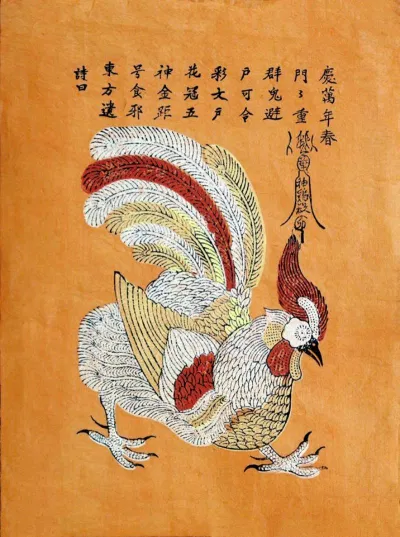 詩曰
東方遺
号食邪
神金距
花冠五
彩文戶
戶可令
群鬼避
門々重
慶萬年春